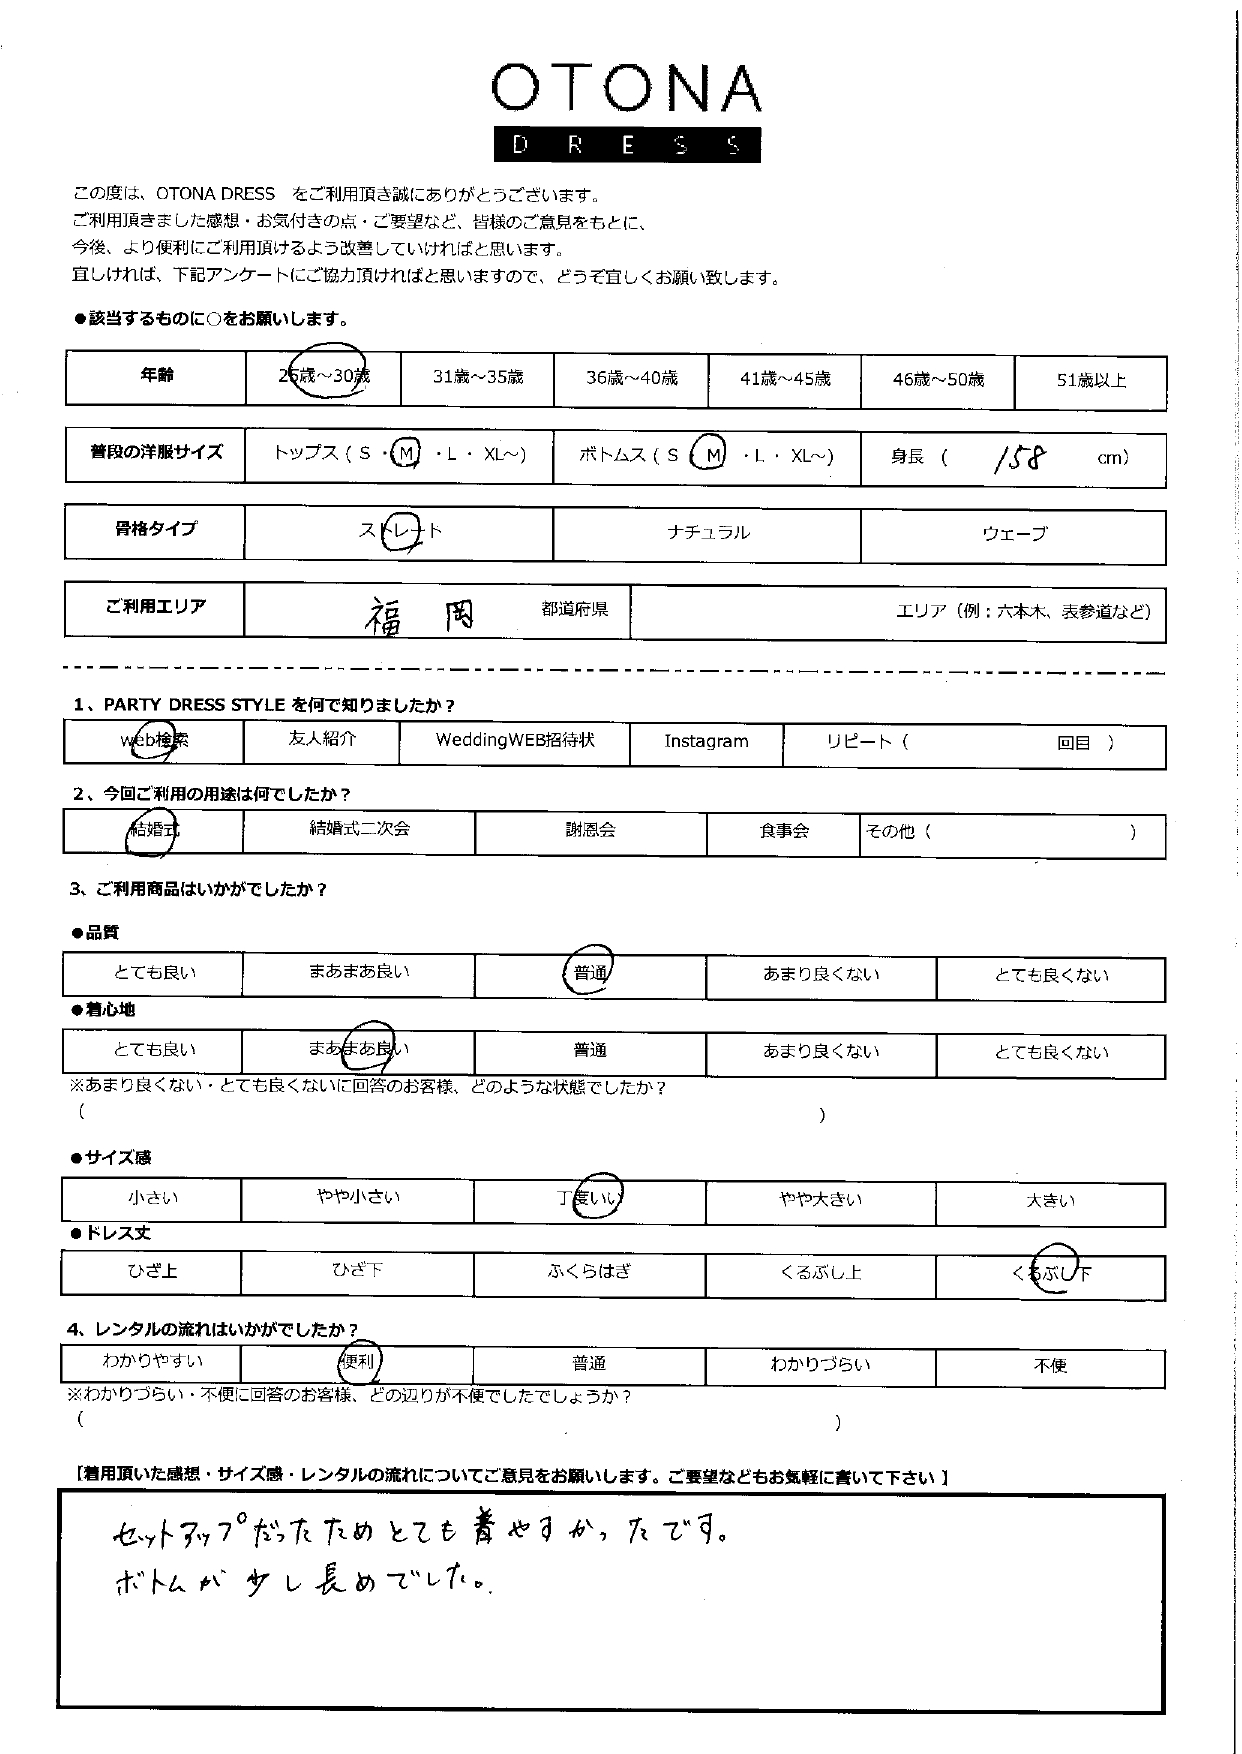 OTONA
DRESS
この度は、OTONA DRESS　をご利用頂き誠にありがとうございます。
ご利用頂きました感想・お気付きの点・ご要望など、皆様のご意見をもとに、
今後、より便利にご利用頂けるよう改善していければと思います。
宜しければ、下記アンケートにご協力頂ければと思いますので、どうぞ宜しくお願い致します。
●該当するものに○をお願いします。
年齢 25歳～30歳 31歳～35歳 36歳～40歳 41歳～45歳 46歳～50歳 51歳以上
普段の洋服サイズ トップス ( S ・ M ・ L ・ XL～) ボトムス ( S M ・ L ・ XL～) 身長 ( 158 cm)
骨格タイプ ストレート ナチュラル ウェーブ
ご利用エリア 福岡 都道府県 エリア（例：六本木、表参道など）
1、PARTY DRESS STYLE を何で知りましたか？
web検索 友人紹介 WeddingWEB招待状 Instagram リピート ( 回目 )
2、今回ご利用の用途は何でしたか？
結婚式 結婚式二次会 謝恩会 食事会 その他 ( )
3、ご利用商品はいかがでしたか？
●品質
とても良い まあまあ良い 普通 あまり良くない とても良くない
●着心地
とても良い まあまあ良い 普通 あまり良くない とても良くない
※あまり良くない・とても良くないに回答のお客様、どのような状態でしたか？
( )
●サイズ感
小さい やや小さい 丁度いい やや大きい 大きい
●ドレス丈
ひざ上 ひざ下 ふくらはぎ くるぶし上 くるぶし下
4、レンタルの流れはいかがでしたか？
わかりやすい 便利 普通 わかりづらい 不便
※わかりづらい・不便に回答のお客様、どの辺りが不便でしたでしょうか？
( )
【着用頂いた感想・サイズ感・レンタルの流れについてご意見をお願いします。ご要望などもお気軽に書いて下さい】
セットアップだったためとても着やすかったです。
ボトムが少し長めでした。